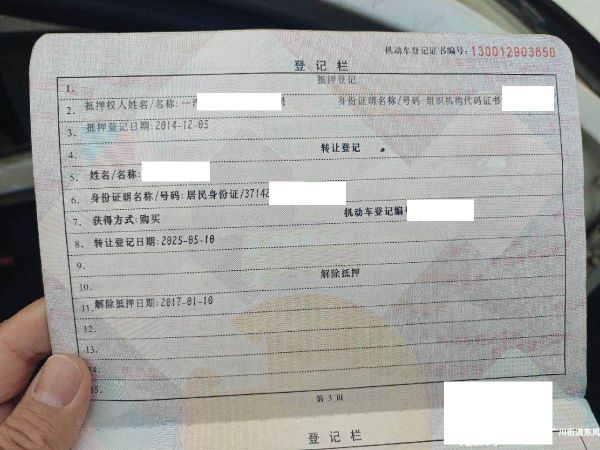 机动车登记证书编号: 130012903850
登记栏
1. 抵押登记
2. 抵押权人姓名/名称: 一汽 身份证明名称/号码: 组织机构代码证书
3. 抵押登记日期: 2014-12-05
4. 转让登记
5. 姓名/名称:
6. 身份证明名称/号码: 居民身份证/37142
7. 获得方式: 购买 机动车登记编号
8. 转让登记日期: 2025-05-10
9.
10. 解除抵押
11. 解除抵押日期: 2017-01-10
12.
13.
14.
15.
第 3 页
登记栏
川街道东风